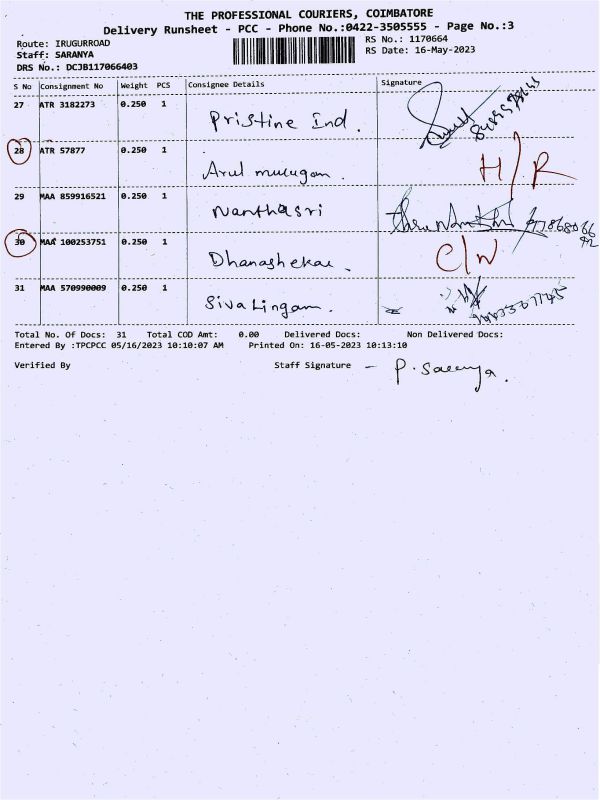 THE PROFESSIONAL COURIERS, COIMBATORE
Delivery Runsheet - PCC - Phone No.:0422-3505555 - Page No.:3
Route: IRUGURROAD
Staff: SARANYA
DRS No.: DCJB117066403
RS No.: 1170664
RS Date: 16-May-2023
S No Consignment No Weight PCS Consignee Details Signature
27 ATR 3182273 0.250 1 Pristine Ind.
28 ATR 57877 0.250 1 Arul mulugan. H/R
29 MAA 859916521 0.250 1 Nanthasri
30 MAA 100253751 0.250 1 Dhanashekar. C/W
31 MAA 570990009 0.250 1 Siva Lingam.
Total No. Of Docs: 31 Total COD Amt: 0.00 Delivered Docs: Non Delivered Docs:
Entered By :TPCPCC 05/16/2023 10:10:07 AM Printed On: 16-05-2023 10:13:10
Verified By Staff Signature - P. Saranya.